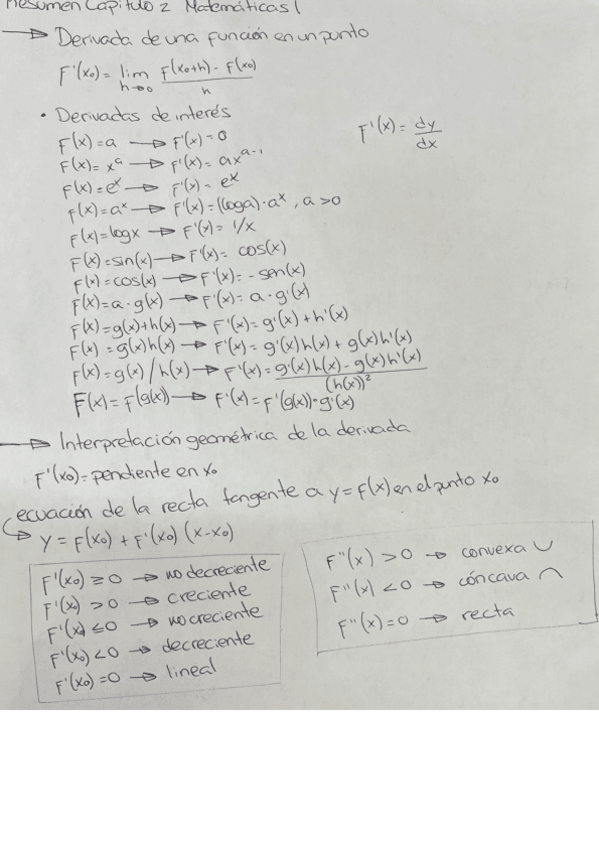 Resumen Capitulo 2 Matemáticas 1
→ Derivada de una función en un punto
F'(x₀) = lim h→0 F(x₀+h) - F(x₀) / h
• Derivadas de interés
F'(x) = dy/dx
F(x) = a → F'(x) = 0
F(x) = xᵃ → F'(x) = axᵃ⁻¹
F(x) = eˣ → F'(x) = eˣ
F(x) = aˣ → F'(x) = (log a)·aˣ, a > 0
F(x) = log x → F'(x) = 1/x
F(x) = sin(x) → F'(x) = cos(x)
F(x) = cos(x) → F'(x) = - sen(x)
F(x) = a · g(x) → F'(x) = a · g'(x)
F(x) = g(x) + h(x) → F'(x) = g'(x) + h'(x)
F(x) = g(x)h(x) → F'(x) = g'(x)h(x) + g(x)h'(x)
F(x) = g(x) / h(x) → F'(x) = g'(x)h(x) - g(x)h'(x) / (h(x))²
F(x) = f(g(x)) → F'(x) = f'(g(x)) · g'(x)
→ Interpretación geométrica de la derivada
F'(x₀) = pendiente en x₀
ecuación de la recta tangente a y = f(x) en el punto x₀
↳ y = F(x₀) + F'(x₀) (x - x₀)
F'(x₀) ≥ 0 → no decreciente
F'(x₀) > 0 → creciente
F'(x₀) ≤ 0 → no creciente
F'(x₀) < 0 → decreciente
F'(x₀) = 0 → lineal
F''(x) > 0 → convexa ∪
F''(x) < 0 → cóncava ∩
F''(x) = 0 → recta